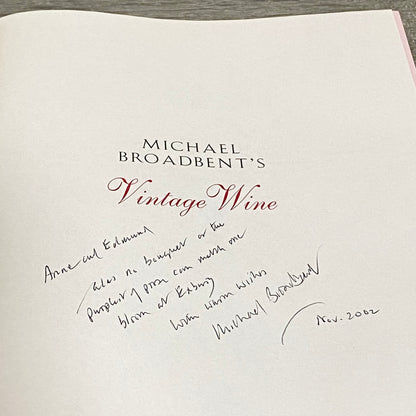 MICHAEL
BROADBENT'S
Vintage Wine
Anne and Edmund
alas no bouquet or the
purplest of prose can match one
bloom at Exbury
With warm wishes
Michael Broadbent
Nov. 2002